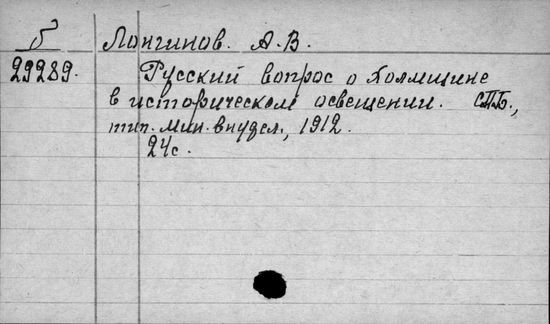 б Лонгинов. А.В.
29289. Русский вопрос о Холмщине
в историческом освещении. СПБ.,
тип. Мин. внудел., 1912.
24с.